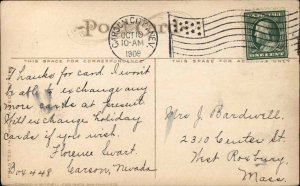 Post Card
CARSON CITY, NEV.
OCT 18
10-AM
1909
THIS SPACE FOR CORRESPONDENCE
THIS SPACE FOR ADDRESS ONLY.
Thanks for card I won't
be able to exchange any
more cards at present
Will exchange holiday
cards if you wish.
Florence Ewart.
Box 448 Carson, Nevada
Mrs J. Bardwell.
2310 Center St
West Roxbury,
Mass.